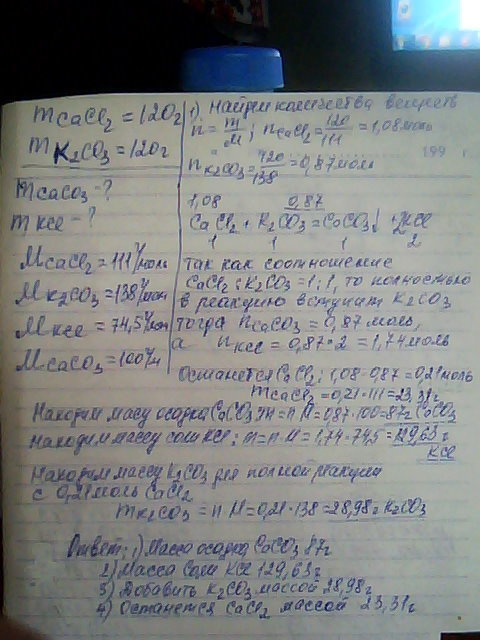 m CaCl₂ = 120г
m K₂CO₃ = 120г
m CaCO₃ - ?
m KCl - ?
M CaCl₂ = 111 г/моль
M K₂CO₃ = 138 г/моль
M KCl = 74,5 г/моль
M CaCO₃ = 100 г/м
1) Найдем количества веществ
n = m/M ; n CaCl₂ = 120/111 = 1,08 моль
199 г.
n K₂CO₃ = 120/138 = 0,87 моль
1,08 0,87
CaCl₂ + K₂CO₃ = CaCO₃↓ + 2KCl
1 1 1 2
так как соотношение
CaCl₂ : K₂CO₃ = 1:1, то полностью
в реакцию вступит K₂CO₃
тогда n CaCO₃ = 0,87 моль,
а n KCl = 0,87·2 = 1,74 моль
Останется CaCl₂: 1,08-0,87=0,21 моль
m CaCl₂ = 0,21·111 = 23,31г
Находим масу осадка CaCO₃ m = n·M = 0,87·100 = 87г CaCO₃
Находим массу соли KCl: m = n·M = 1,74·74,5 = 129,63г
KCl
Находим массу K₂CO₃ для полной реакции
с 0,21 моль CaCl₂
m K₂CO₃ = n·M = 0,21·138 = 28,98г K₂CO₃
Ответ: 1) Масса осадка CaCO₃ 87г
2) Масса Соли KCl 129,63г
3) Добавить K₂CO₃ массой 28,98г
4) Останется CaCl₂ массой 23,31г